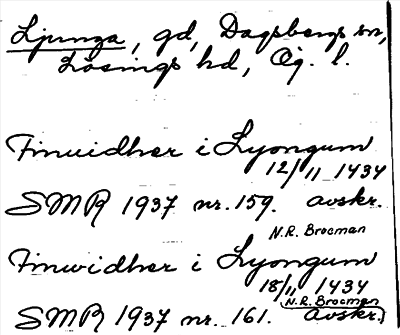 Ljunga, gd, Dagsbergs sn,
Lösings hd, Ög. l.
Finuidher i Lyongum
12/11 1434
SMR 1937 nr. 159. avskr.
N.R. Brocman
Finuidher i Lyongum
18/11 1434
N.R. Brocman
SMR 1937 nr. 161. avskr.)